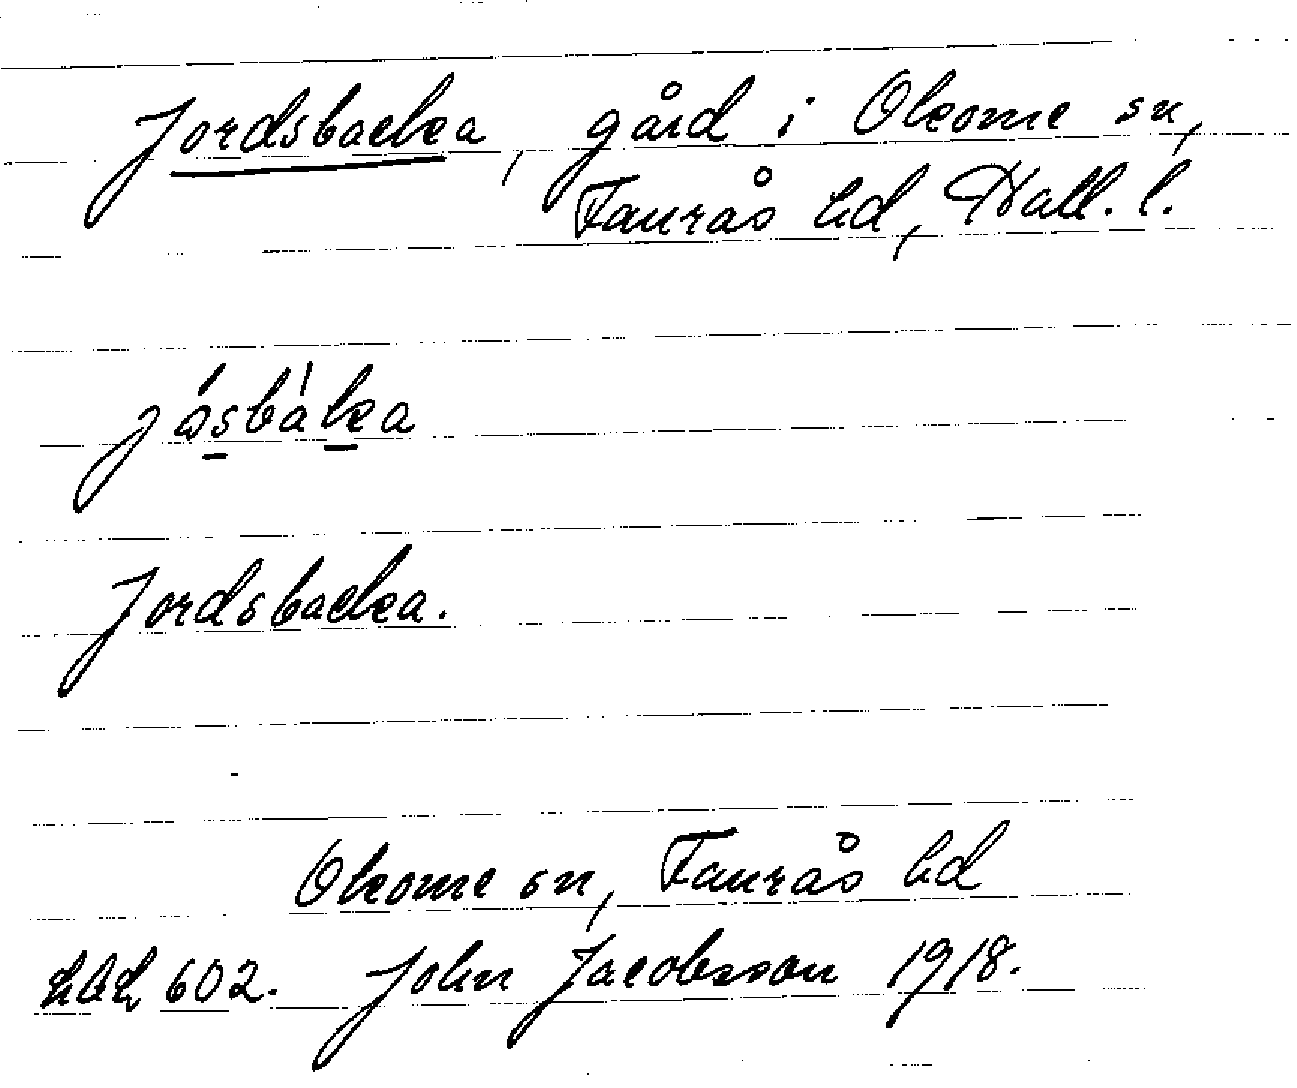 Jordsbacka, gård i Okome sn,
Faurås hd, Hall. l.
jósbàka
Jordsbacka.
Okome sn, Faurås hd
602. John Jacobsson 1918.